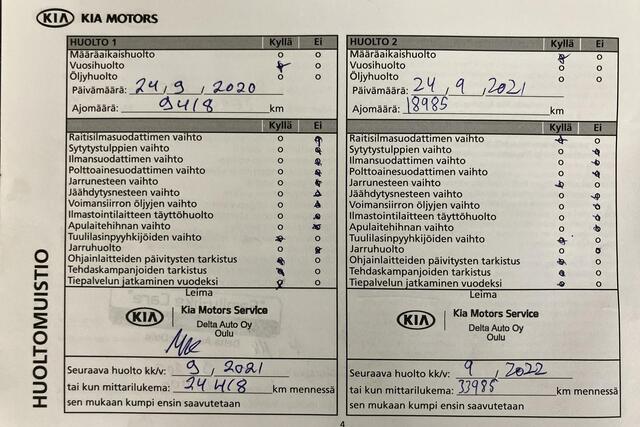 KIA KIA MOTORS
HUOLTO 1 Kyllä Ei
Määräaikaishuolto o o
Vuosihuolto o
Öljyhuolto o o
Päivämäärä: 24, 9, 2020
Ajomäärä: 9418 km
Kyllä Ei
Raitisilmasuodattimen vaihto o
Sytytystulppien vaihto o
Ilmansuodattimen vaihto o
Polttoainesuodattimen vaihto o
Jarrunesteen vaihto o
Jäähdytysnesteen vaihto o
Voimansiirron öljyjen vaihto o
Ilmastointilaitteen täyttöhuolto o
Apulaitehihnan vaihto o
Tuulilasinpyyhkijöiden vaihto o
Jarruhuolto o
Ohjainlaitteiden päivitysten tarkistus o
Tehdaskampanjoiden tarkistus o
Tiepalvelun jatkaminen vuodeksi o
Leima
KIA Kia Motors Service
Delta Auto Oy
Oulu
Seuraava huolto kk/v: 9, 2021
tai kun mittarilukema: 24418 km mennessä
sen mukaan kumpi ensin saavutetaan
HUOLTO 2 Kyllä Ei
Määräaikaishuolto o
Vuosihuolto o o
Öljyhuolto o o
Päivämäärä: 24, 9, 2021
Ajomäärä: 18985 km
Kyllä Ei
Raitisilmasuodattimen vaihto o
Sytytystulppien vaihto o
Ilmansuodattimen vaihto o
Polttoainesuodattimen vaihto o
Jarrunesteen vaihto o
Jäähdytysnesteen vaihto o
Voimansiirron öljyjen vaihto o
Ilmastointilaitteen täyttöhuolto o
Apulaitehihnan vaihto o
Tuulilasinpyyhkijöiden vaihto o
Jarruhuolto o
Ohjainlaitteiden päivitysten tarkistus o
Tehdaskampanjoiden tarkistus o
Tiepalvelun jatkaminen vuodeksi o
Leima
KIA Kia Motors Service
Delta Auto Oy
Oulu
Seuraava huolto kk/v: 9, 2022
tai kun mittarilukema: 33985 km mennessä
sen mukaan kumpi ensin saavutetaan
HUOLTOMUISTIO
4